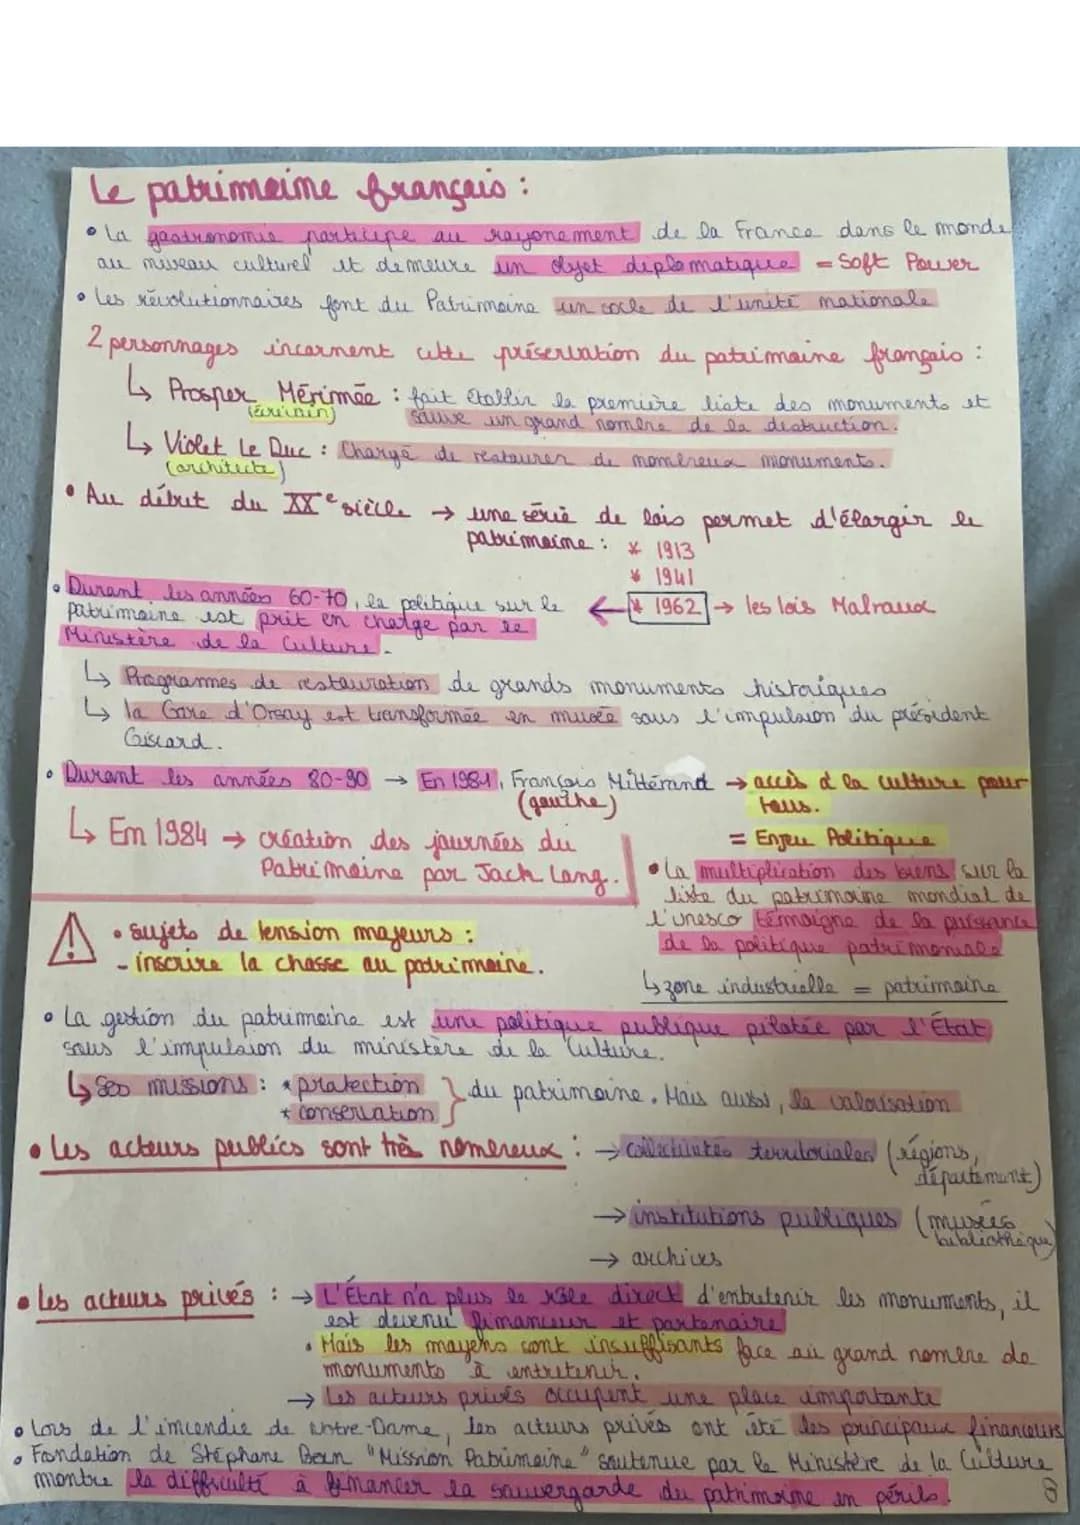 Le patrimoine français :
• La gastronomie participe au rayonement de la France dans le monde
au niveau culturel et demeure un objet diplomatique = Soft Power
• Les révolutionnaires font du Patrimoine un socle de l'unité nationale
2 personnages incarnent cette préservation du patrimoine français :
↳ Prosper Mérimée : fait établir la première liste des monuments et
(écrivain) sauve un grand nombre de la destruction.
↳ Violet Le Duc : Chargé de restaurer de nombreux monuments.
(architecte)
• Au début du XXe siècle → une série de lois permet d'élargir le
patrimoine : * 1913
* 1941
* 1962 → les lois Malraux
• Durant les années 60-70, la politique sur le ←
patrimoine est prit en charge par le
Ministère de la Culture.
↳ Programmes de restauration de grands monuments historiques
↳ la Gare d'Orsay est transformée en musée sous l'impulsion du président
Giscard.
• Durant les années 80-90 → En 1981, François Mittérand → accès à la culture pour
(gauche) tous.
= Enjeu Politique
↳ En 1984 → création des journées du
Patrimoine par Jack Lang.
• La multiplication des biens sur la
liste du patrimoine mondial de
l'unesco témoigne de la puissance
de la politique patrimoniale
↳ zone industrielle = patrimoine
⚠ • sujets de tension majeurs :
- inscrire la chasse au patrimoine.
• La gestion du patrimoine est une politique publique pilotée par l'État
sous l'impulsion du ministère de la Culture.
↳ Ses missions : * protection
* conservation } du patrimoine. Mais aussi, la valorisation
• Les acteurs publics sont très nombreux : → collectivités territoriales (régions,
département)
→ institutions publiques (musées
bibliothèque)
→ archives
• Les acteurs privés : → L'État n'a plus le rôle direct d'entretenir les monuments, il
est devenu financeur et partenaire
• Mais les moyens sont insuffisants face au grand nombre de
monuments à entretenir.
→ Les acteurs privés occupent une place importante
• Lors de l'incendie de Notre-Dame, les acteurs privés ont été les principaux financeurs
• Fondation de Stéphane Bern "Mission Patrimoine" soutenue par le Ministère de la Culture
montre la difficulté à financer la sauvegarde du patrimoine en périls.
8